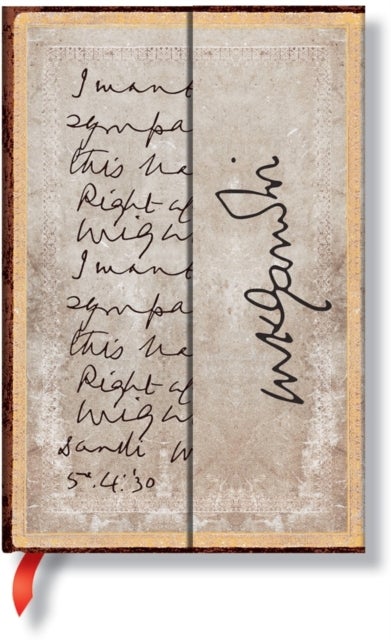 I want
sympa
this ba
Right ag
Migh
I want
sympa
this ba
Right ag
Migh
Dandi M
5.4.'30
MKGandhi